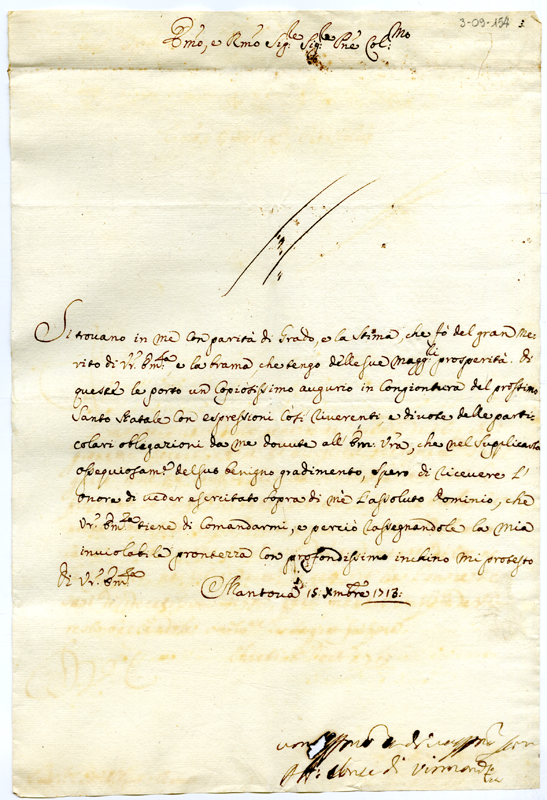 3-09-154
Emo, e Rmo Sig.e Sig.e Pne Col.mo
Si trovano in me con parità di Grado, e la Stima, che fò del gran Me-
rito di Vr. Em.za e la brama che tengo delle sue magg.li prosperità. Di
queste le porto un Copiosissimo augurio in Congiontura del prossimo
Santo Natale con espressioni così riverenti e divote delle parti-
colari obligazioni da me dovute all' Em. Vra, che nel suplicarla
ossequiosam.e del suo benigno gradimento, spero di ricevere L'
Onore di veder esercitato sopra di mè L'assoluto Dominio, che
Vr. Em.za tiene di Comandarmi, e perciò rassegnandole la mia
inviolabile prontezza con profondissimo inchino mi protesto
di Vr. Em.za
Mantova 15. Xmbre 1713:
di
di